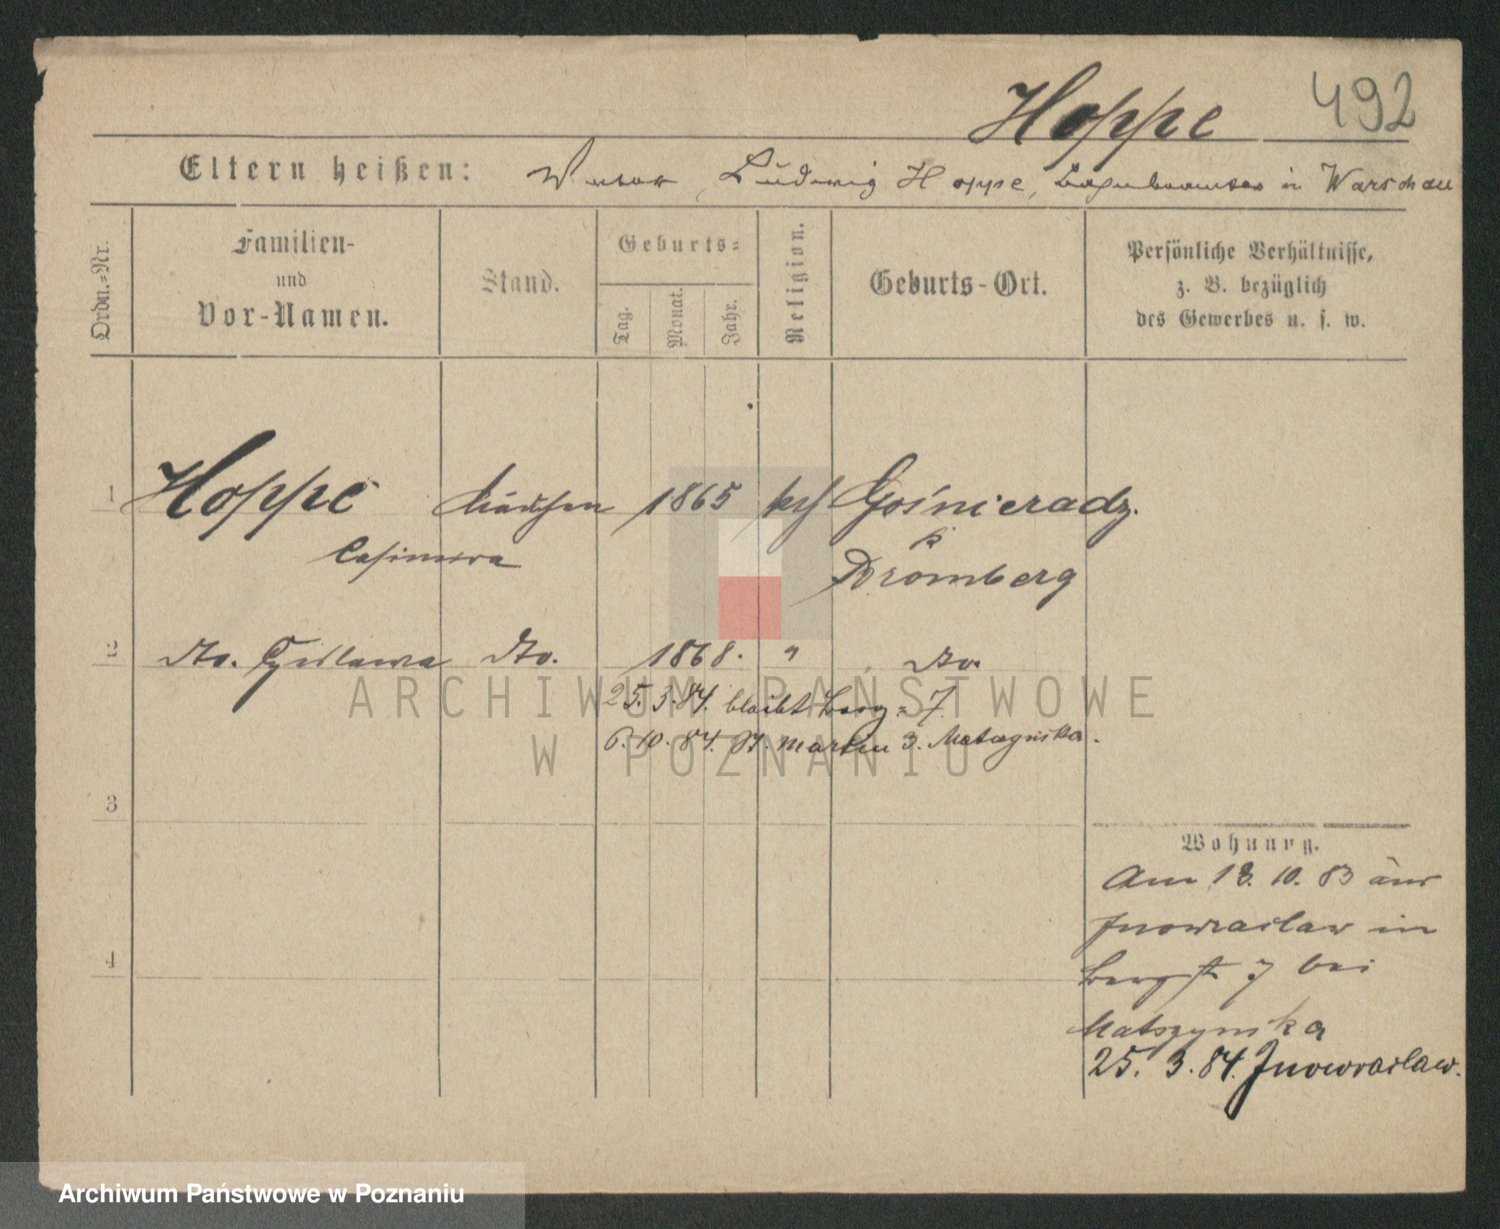 Hoppe 492
Eltern heißen: Vater Ludwig Hoppe, in Warschau
Ordn.-Nr.
Familien-
und
Vor-Namen.
Stand.
Geburts-
Tag.
Monat.
Jahr.
Religion.
Geburts-Ort.
Persönliche Verhältnisse,
z. B. bezüglich
des Gewerbes u. s. w.
1 Hoppe 1865 kath Gośnieradz.
Casimira k
Bromberg
2 do. do. 1868. " do.
25. 3. 84. bleibt Berg- 7.
6. 10. 84. St. Martin 3.
3
4
Wohnung.
Am 18. 10. 83 aus
Inowraclaw in
Bergst 7 bei
Matszynska
25. 3. 84. Inowraclaw.
ARCHIWUM PAŃSTWOWE
W POZNANIU
Archiwum Państwowe w Poznaniu